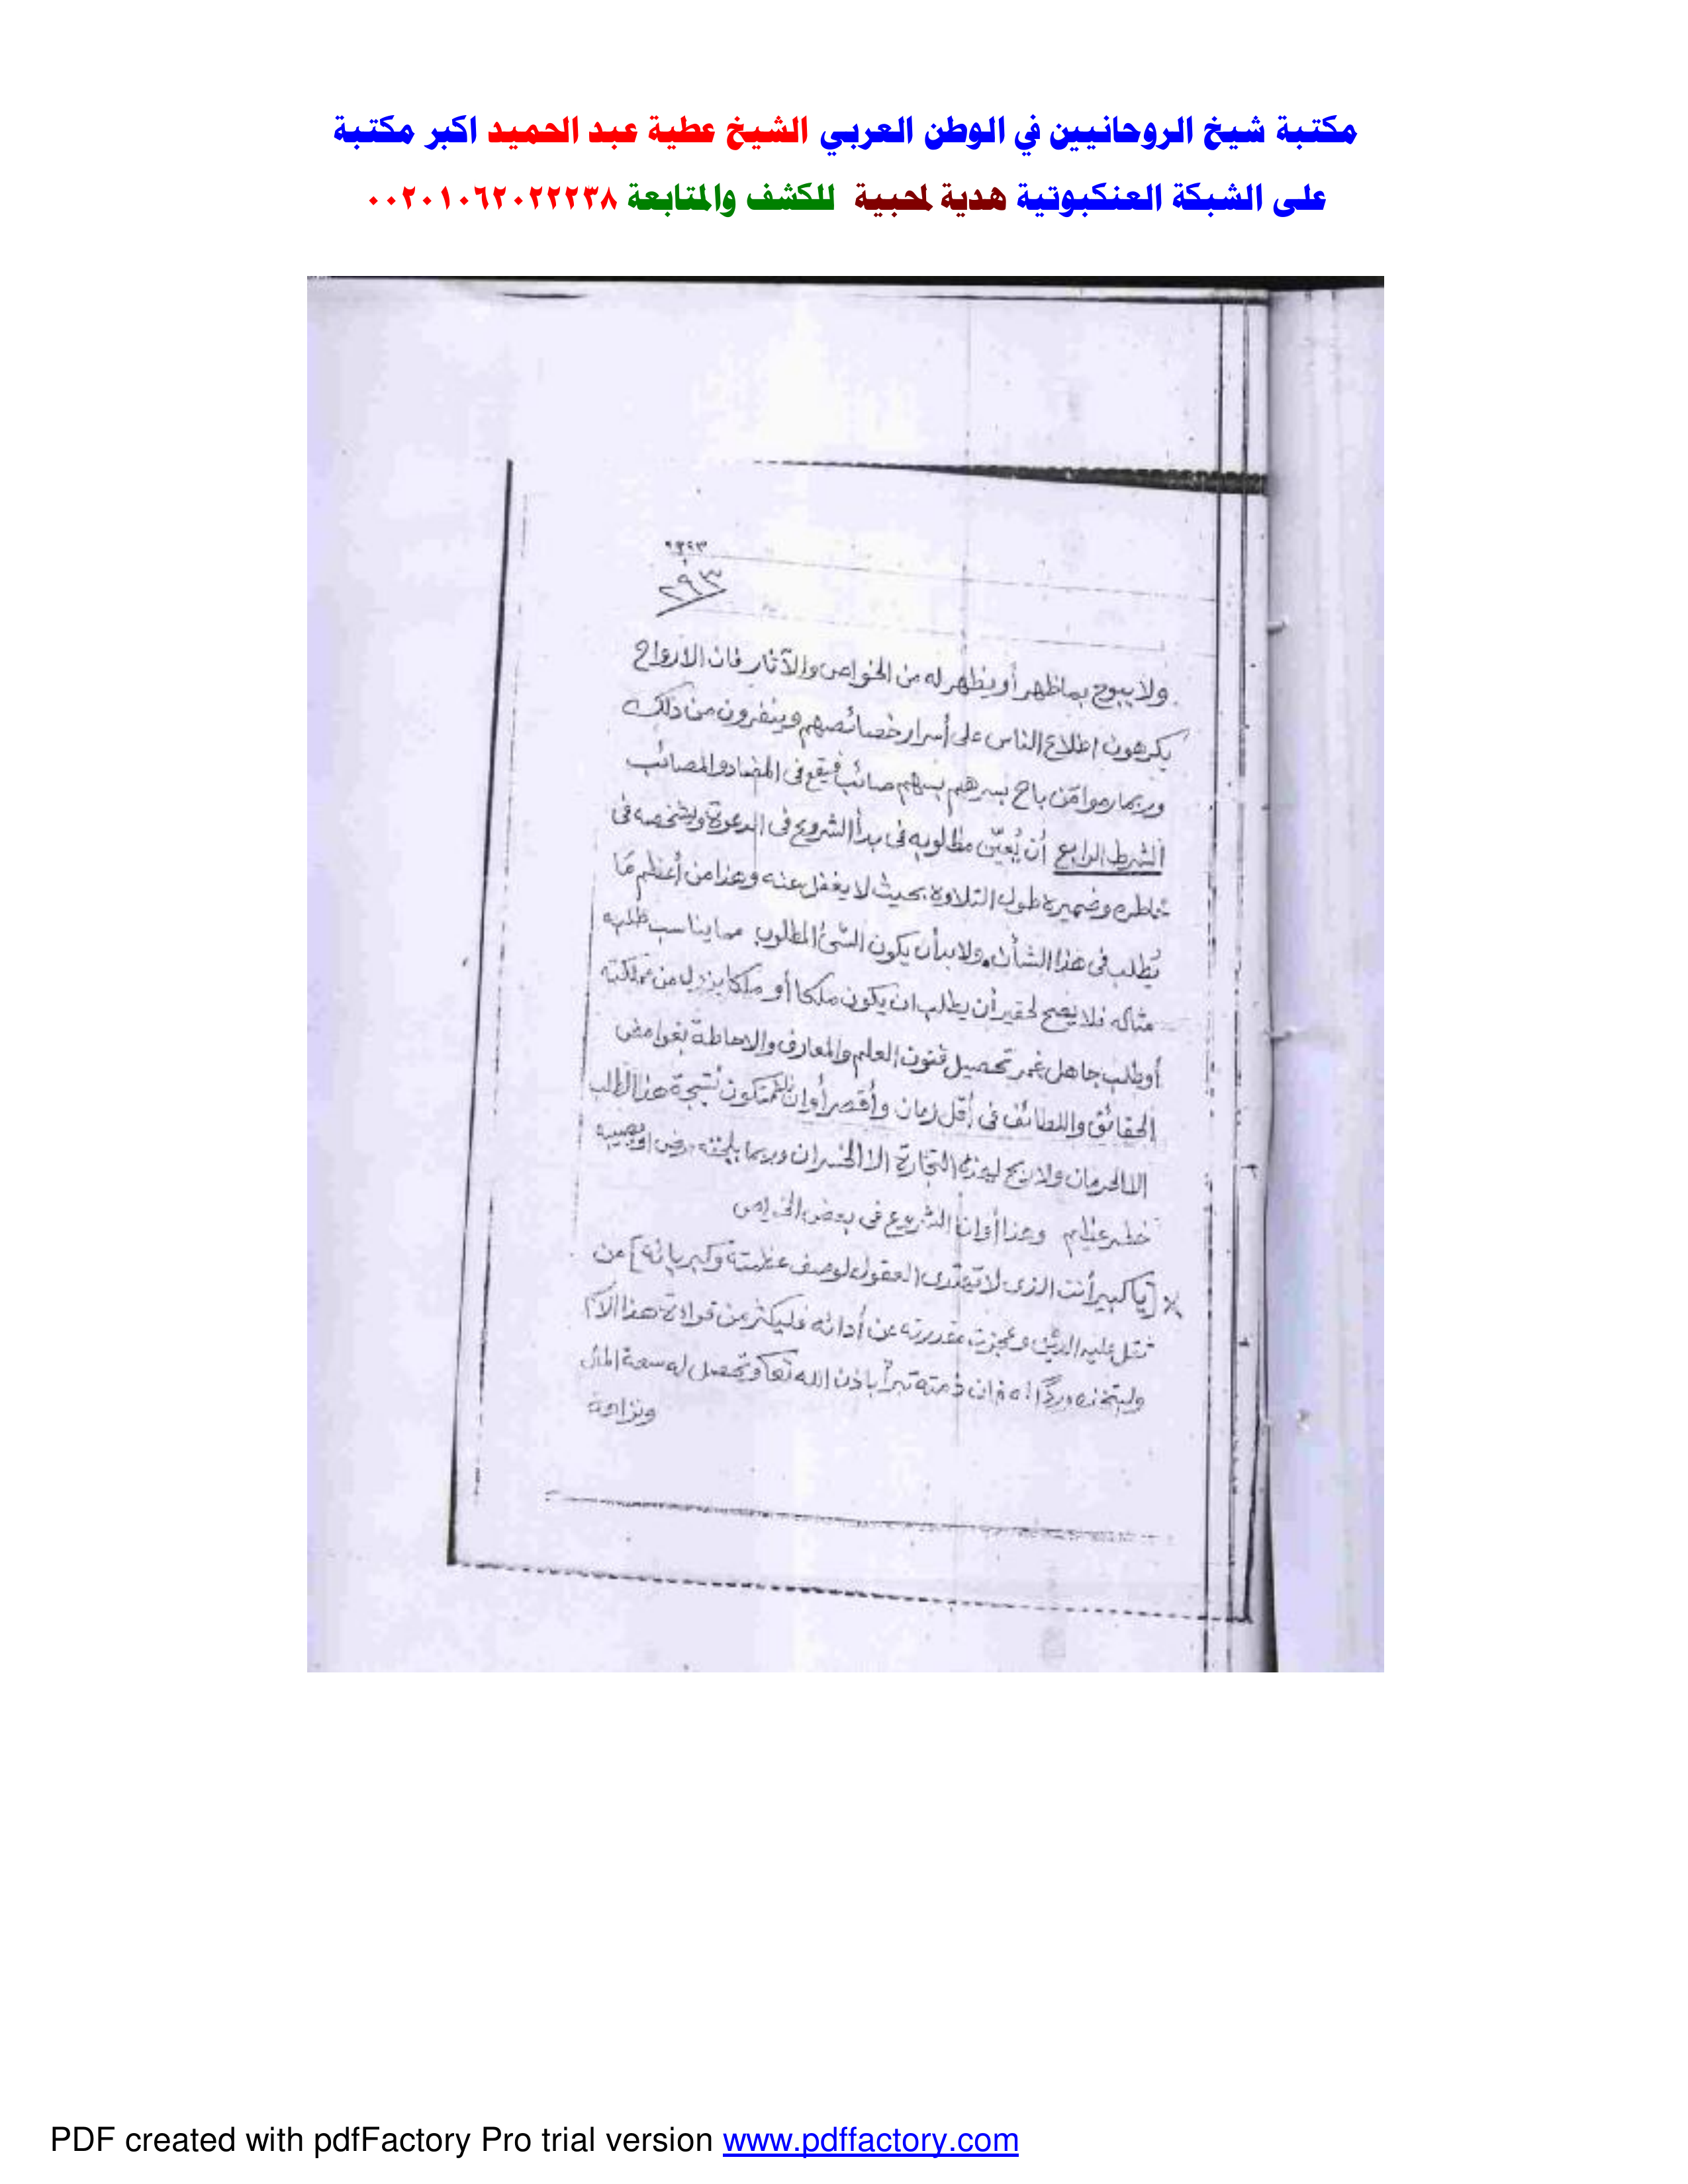 مكتبة شيخ الروحانيين في الوطن العربي الشيخ عطية عبد الحميد اكبر مكتبة
على الشبكة العنكبوتية هدية لمحبية للكشف والمتابعة ٠٠٢٠١٠٦٢٠٢٢٢٣٨
٢٩٣
ولا يبوح بماظهر أو يظهر له من الخواص والآثار فان الارواح
يكرهون اطلاع الناس على أسرار خصائصهم وينفرون من ذلك
وربما رموا من باح بسرهم بسهم صائب فيقع فى المضار والمصائب
الشرط الرابع أن يُعيّن مطلوبه فى بدأ الشروع فى الدعوة ويشخصه فى
خاطره وضميره طول التلاوة بحيث لا يغفل عنه وهذا من أعظم مَا
يُطلب فى هذا الشأن ولا بد أن يكون الشئ المطلوب مما يناسب طلبه
مثاله فلا يصح لحقير أن يطلب ان يكون ملكا أو ملكا يزيله من مملكته
أو طلب جاهل غمر تحصيل فنون العلم والمعارف والاحاطة بغوامض
الحقائق واللطائف فى أقل زمان وأقصر أوان تكون نتيجة هذا الطلب
الا الحرمان ولا ربح لهذه التجارة الا الخسران وربما يلحقه مرض او يصيبه
خطر عظيم وهذا أوان الشروع فى بعض الخواص
[ياكبير أنت الذى لا تهتدى العقول لوصف عظمته وكبريائه] من
ثقل عليه الدين وعجزت مقدرته عن أدائه فليكثر من قراءة هذا الاسم
وليتخذه وردًا له فان ذمته تبرأ باذن الله تعا وتحصل له سعة المال